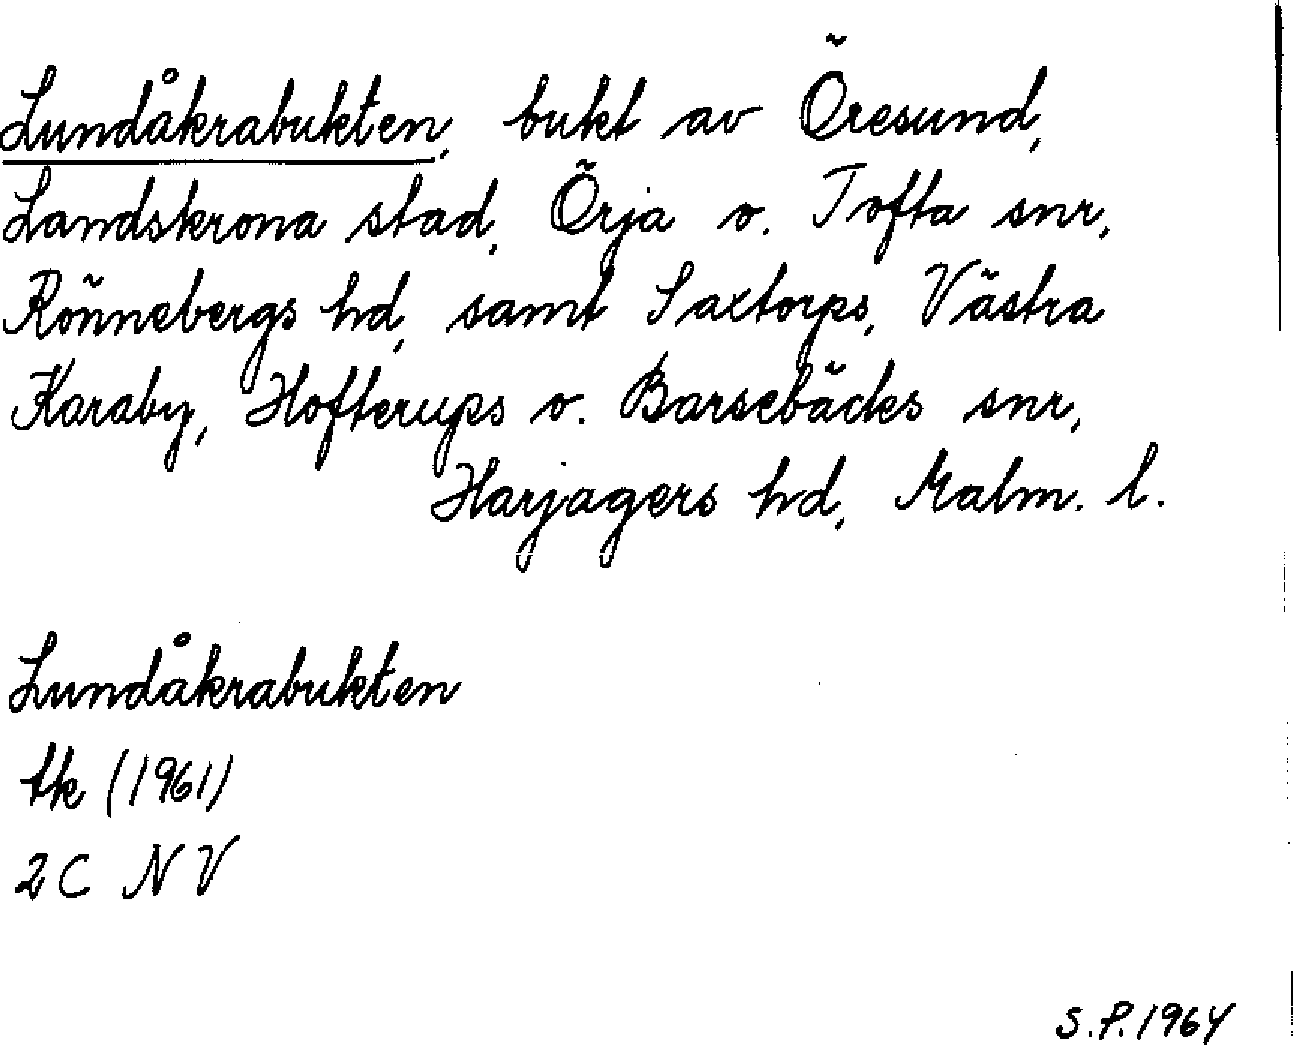 Lundåkrabukten, bukt av Öresund,
Landskrona stad, Örja o. Tofta snr,
Rönnebergs hd, samt Saxtorps, Västra
Karaby, Hofterups o. Barsebäcks snr,
Harjagers hd, Malm. l.
Lundåkrabukten
tk (1961)
2C NV
S.P. 1964